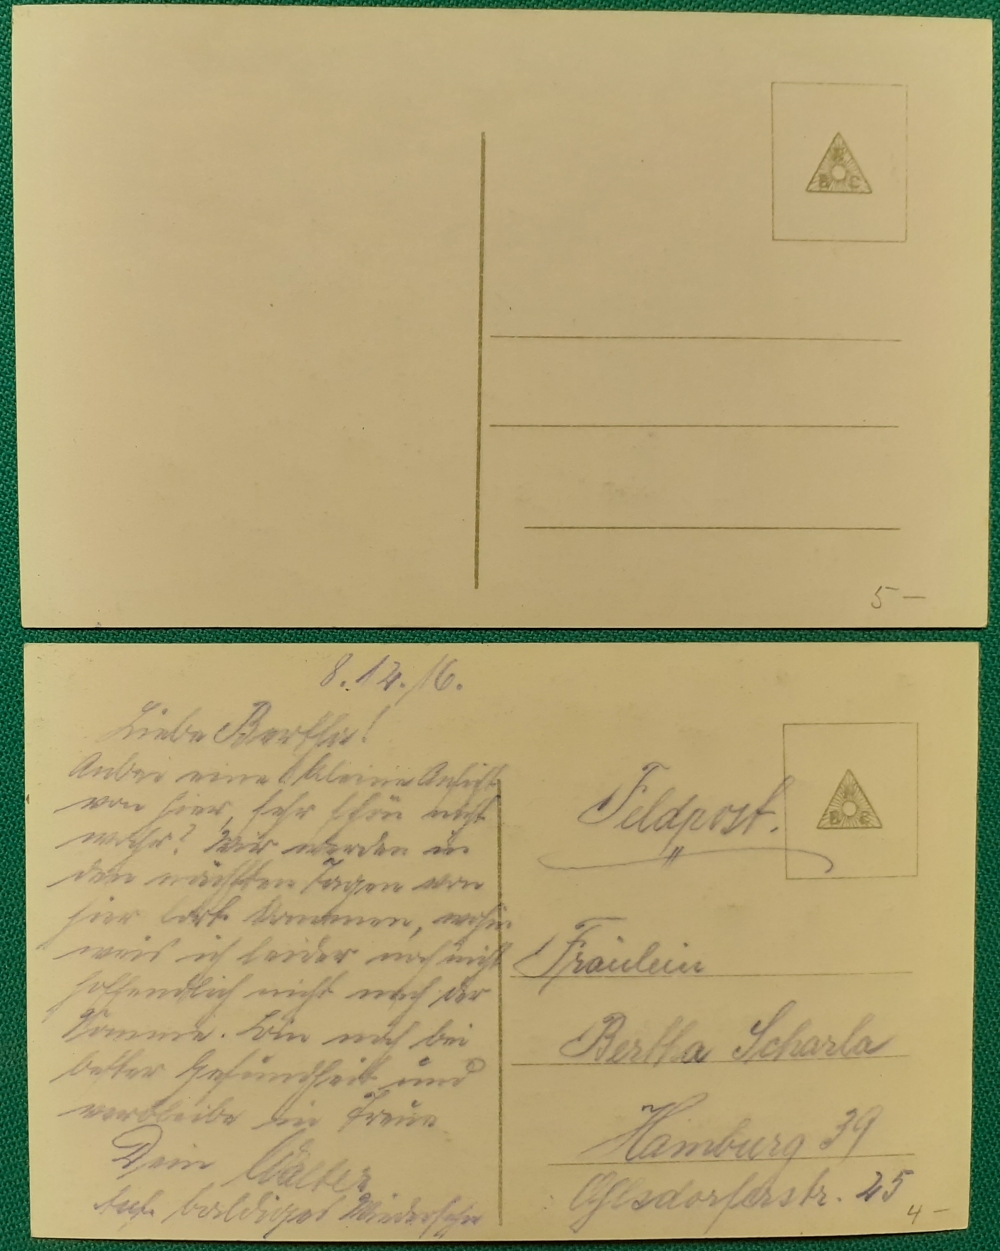 N
B C
5 –
8.12.16.
Liebe Bertha!
Anbei eine kleine Ansicht
von hier, sehr schön nicht
wahr? Wir werden in
den nächsten Tagen von
hier fort kommen, wohin
weis ich leider noch nicht
hoffendlich nicht nach der
Somme. Bin noch bei
bester Gesundheit und
verbleibe in Treue
Dein Walter
Auf baldiges Wiedersehn
N
B C
Feldpost.
Fräulein
Bertha Scharla
Hamburg 39
Ohlsdorferstr. 25
4 –